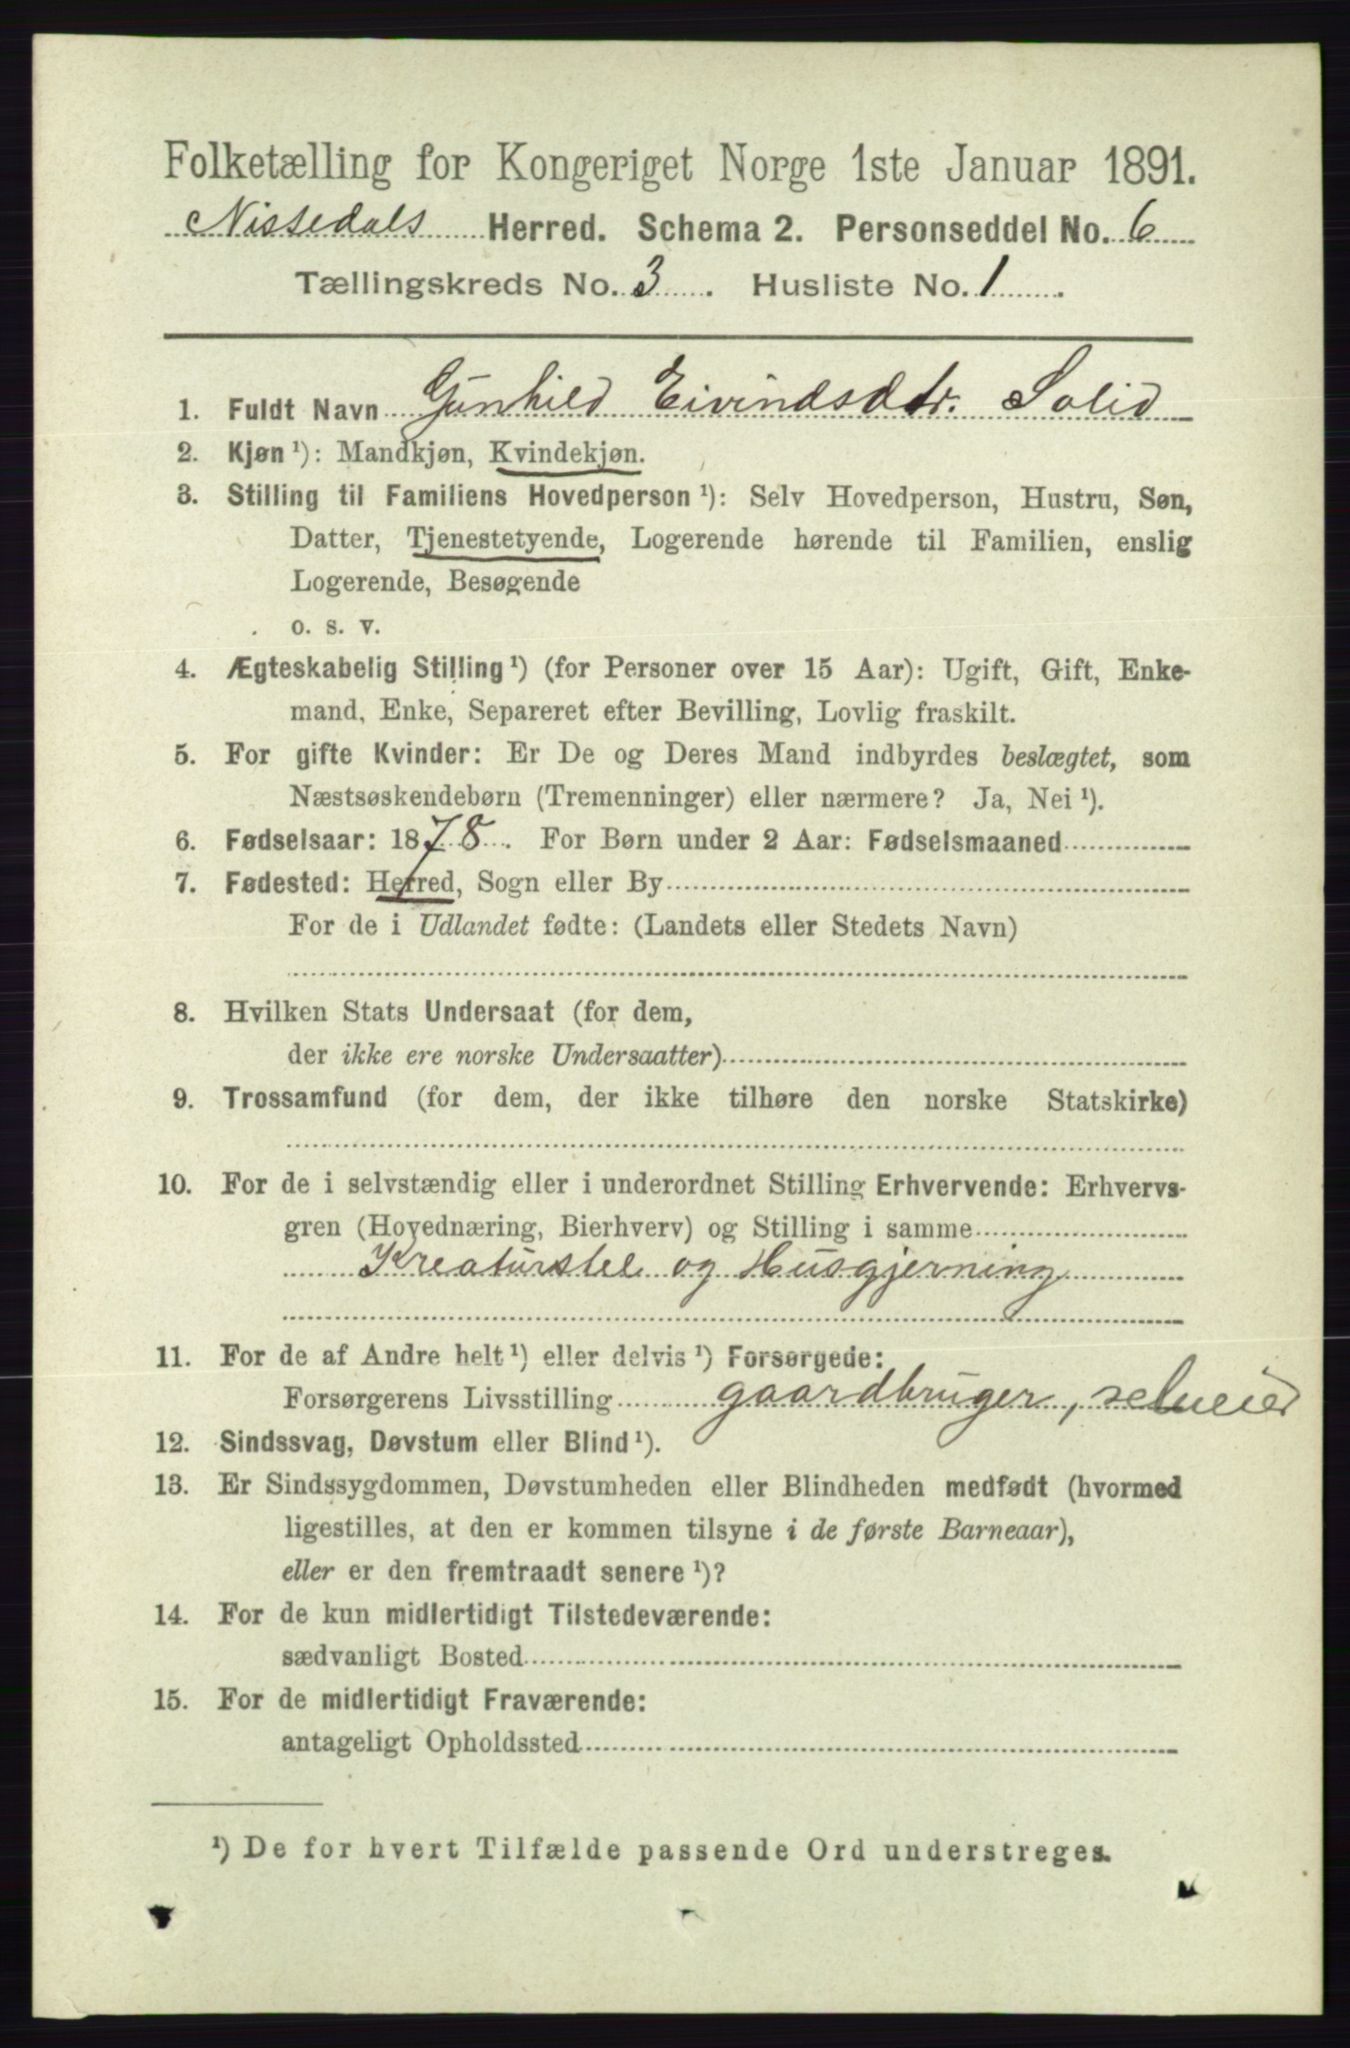 Folketælling for Kongeriget Norge 1ste Januar 1891.
Nissedals Herred. Schema 2. Personseddel No. 6
Tællingskreds No. 3. Husliste No. 1.
1. Fuldt Navn Gunhild Eivindsdtr. Solid
2. Kjøn ¹): Mandkjøn, Kvindekjøn.
3. Stilling til Familiens Hovedperson ¹): Selv Hovedperson, Hustru, Søn,
Datter, Tjenestetyende, Logerende hørende til Familien, enslig
Logerende, Besøgende
o. s. v.
4. Ægteskabelig Stilling ¹) (for Personer over 15 Aar): Ugift, Gift, Enke-
mand, Enke, Separeret efter Bevilling, Lovlig fraskilt.
5. For gifte Kvinder: Er De og Deres Mand indbyrdes beslægtet, som
Næstsøskendebørn (Tremenninger) eller nærmere? Ja, Nei ¹).
6. Fødselsaar: 1878. For Børn under 2 Aar: Fødselsmaaned
7. Fødested: Herred, Sogn eller By
For de i Udlandet fødte: (Landets eller Stedets Navn)
8. Hvilken Stats Undersaat (for dem,
der ikke ere norske Undersaatter)
9. Trossamfund (for dem, der ikke tilhøre den norske Statskirke)
10. For de i selvstændig eller i underordnet Stilling Erhvervende: Erhvervs-
gren (Hovednæring, Bierhverv) og Stilling i samme
Kreaturstel og Husgjerning
11. For de af Andre helt ¹) eller delvis ¹) Forsørgede:
Forsørgerens Livsstilling gaardbruger, selveier
12. Sindssvag, Døvstum eller Blind ¹).
13. Er Sindssygdommen, Døvstumheden eller Blindheden medfødt (hvormed
ligestilles, at den er kommen tilsyne i de første Barneaar),
eller er den fremtraadt senere ¹)?
14. For de kun midlertidigt Tilstedeværende:
sædvanligt Bosted
15. For de midlertidigt Fraværende:
antageligt Opholdssted
¹) De for hvert Tilfælde passende Ord understreges.